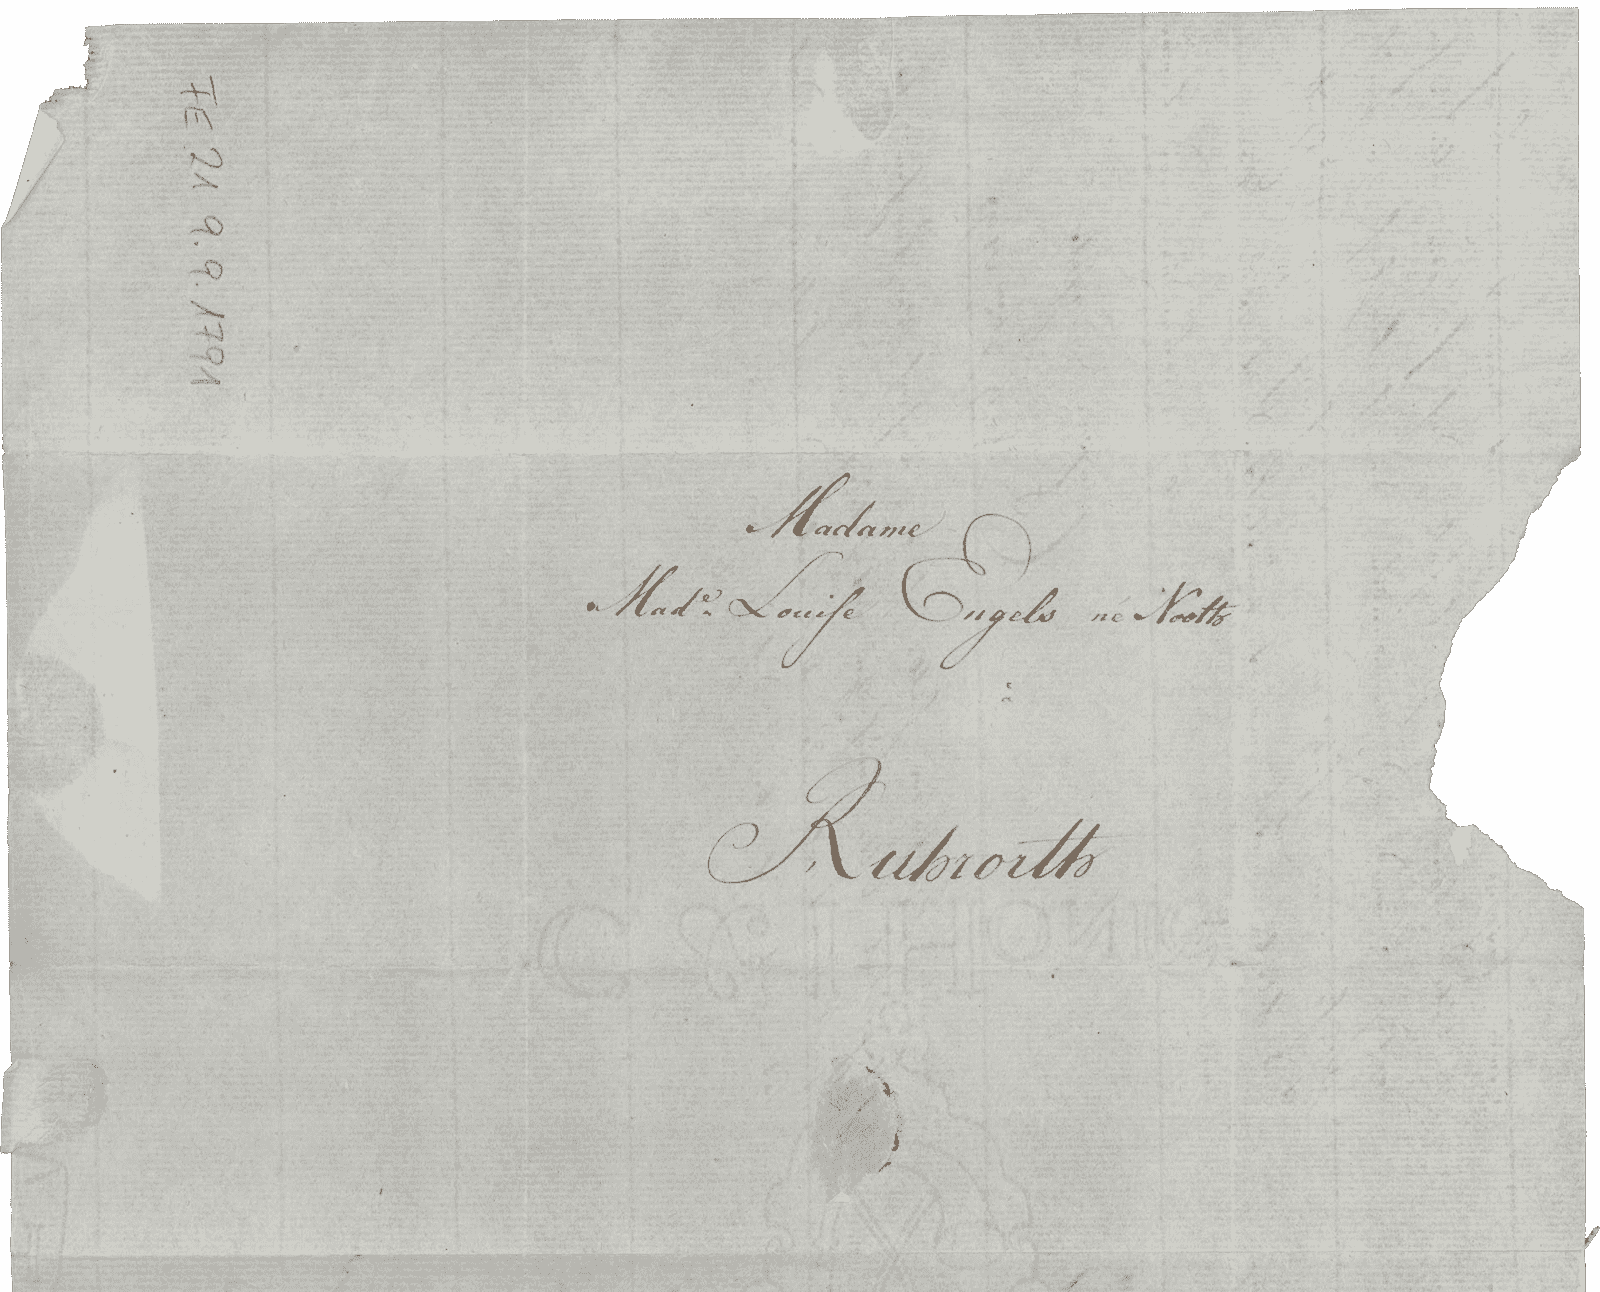 FE 21 9.9.1791
Madame
Mad.e Louise Engels né Noottz
à
Ruhrorth
HONIG & C